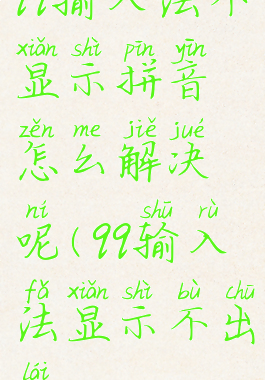 99输入法不
xiǎn shì pīn yīn
显示拼音
zěn me jiě jué
怎么解决
ní shū rù
呢(99输入
fǎ xiǎn shì bù chū
法显示不出
lái